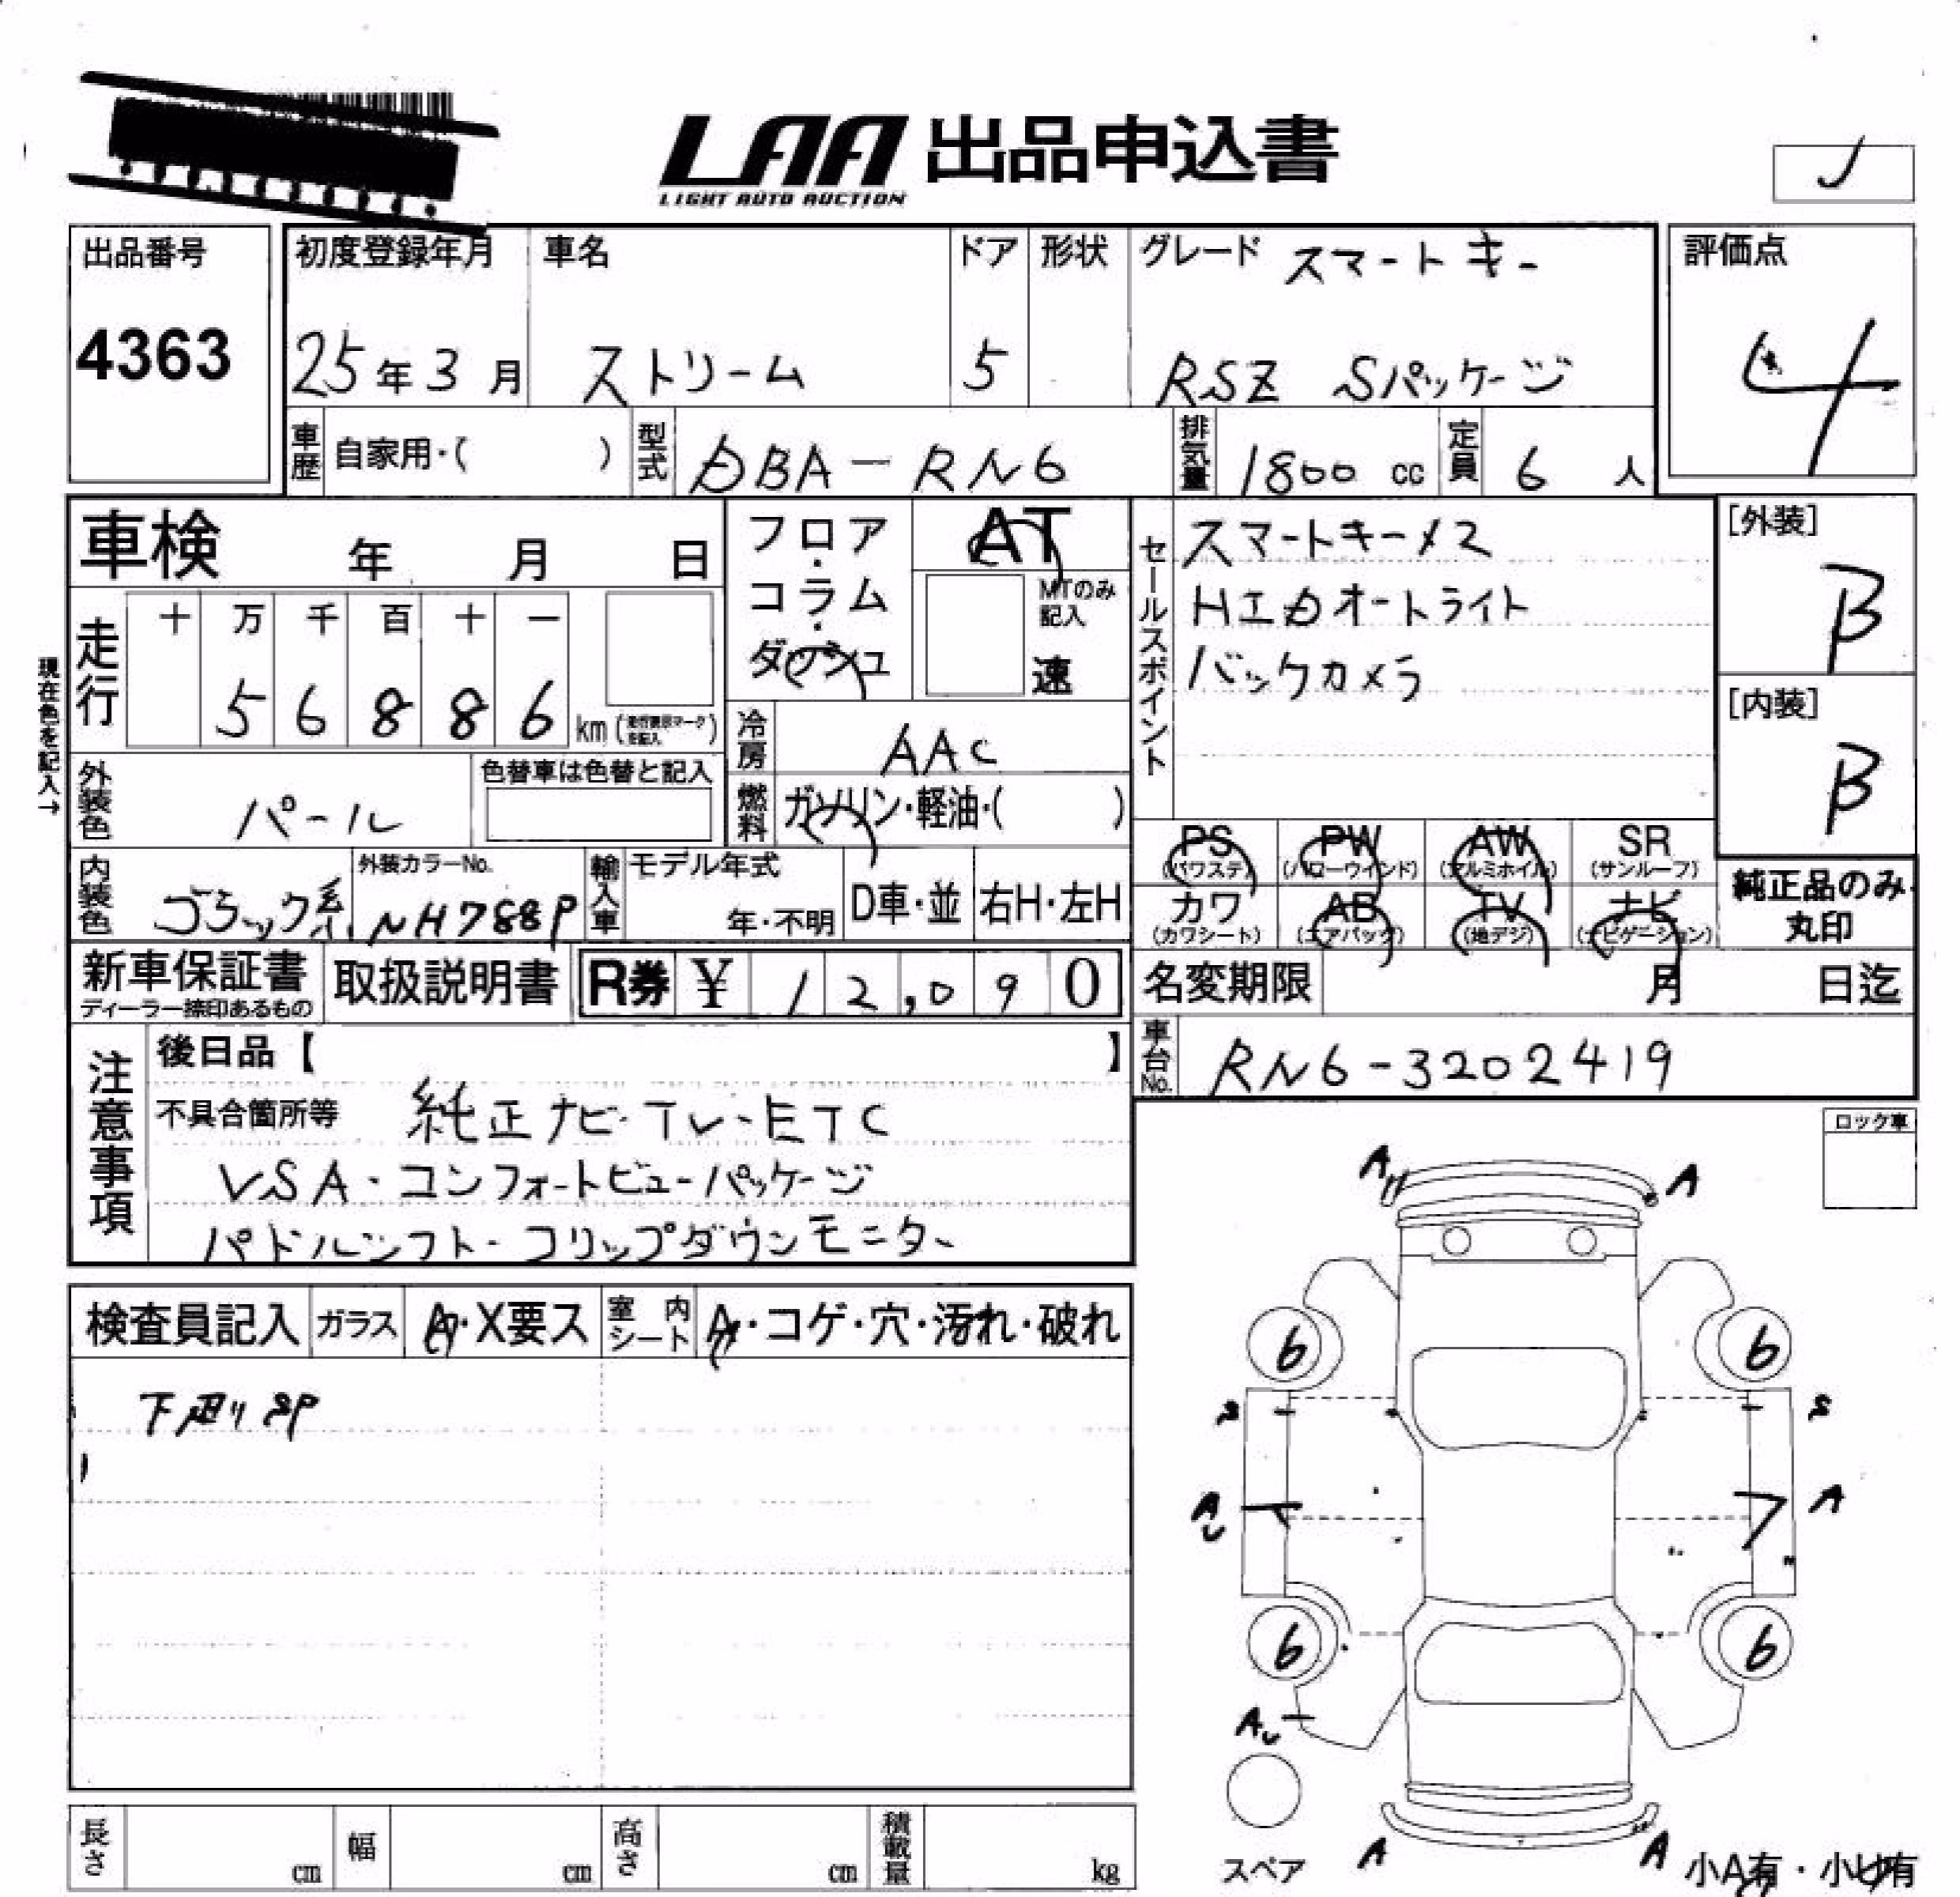 LAA 出品申込書
LIGHT AUTO AUCTION
J
出品番号
4363
初度登録年月 車名 ドア 形状 グレード スマートキー
25年3月 ストリーム 5 RSZ Sパッケージ
評価点
4
車歴 自家用・( ) 型式 DBA-RN6 排気量 1800 cc 定員 6 人
車検 年 月 日
フロア・コラム・ダッシュ
AT
MTのみ記入
速
セールスポイント
スマートキー×2
HIDオートライト
バックカメラ
[外装]
B
[内装]
B
現在色を記入→
走行 十 万 千 百 十 一
5 6 8 8 6 km
冷房 AAC
外装色 パール 色替車は色替と記入
燃料 ガソリン・軽油・( )
内装色 ブラック系 外装カラーNo. NH788P
輸入車 モデル年式 年・不明 D車・並 右H・左H
PS (パワステ) PW (パワーウインド) AW (アルミホイル) SR (サンルーフ)
カワ (カワシート) AB (エアバッグ) TV (地デジ) ナビ (ナビゲーション)
純正品のみ丸印
新車保証書 ディーラー捺印あるもの 取扱説明書 R券 ¥ 12,090
名変期限 月 日迄
車台No. RN6-3202419
注意事項
後日品【 】
不具合箇所等 純正ナビ・TV・ETC
VSA・コンフォートビューパッケージ
パドルシフト・フリップダウンモニター
ロック車
検査員記入 ガラス A・X要ス 室内シート A・コゲ・穴・汚れ・破れ
下廻りSP
A A
6 6
S S
A A
6 6
A
スペア
A A
小A有・小U有
長さ cm 幅 cm 高さ cm 積載量 kg